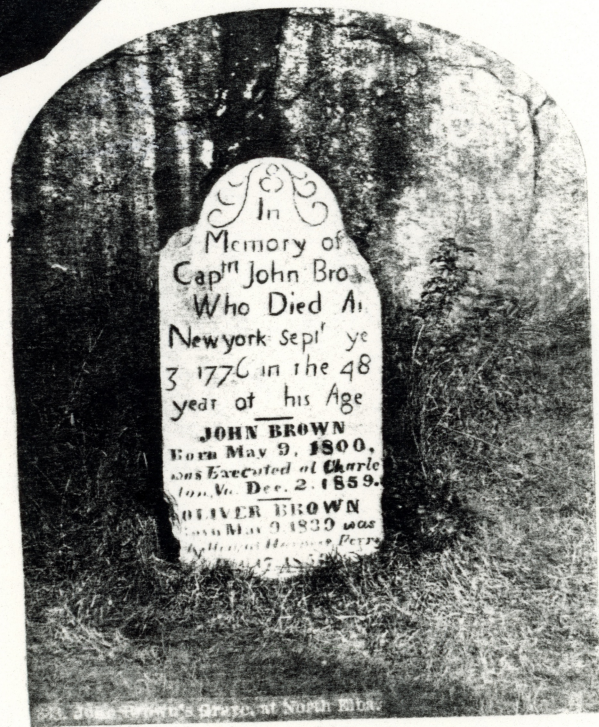 In
Memory of
Captn John Bro
Who Died At
Newyork Septr ye
3 1776 in the 48
year of his Age
JOHN BROWN
Born May 9, 1800,
was Executed at Charles
ton, Va. Dec. 2. 1859.
OLIVER BROWN
Born Mar 9 1839 was
Killed at Harpers Ferry
17
John Brown's Grave, at North Elba.